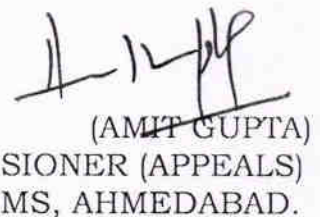 (AMIT GUPTA)
SIONER (APPEALS)
MS, AHMEDABAD.